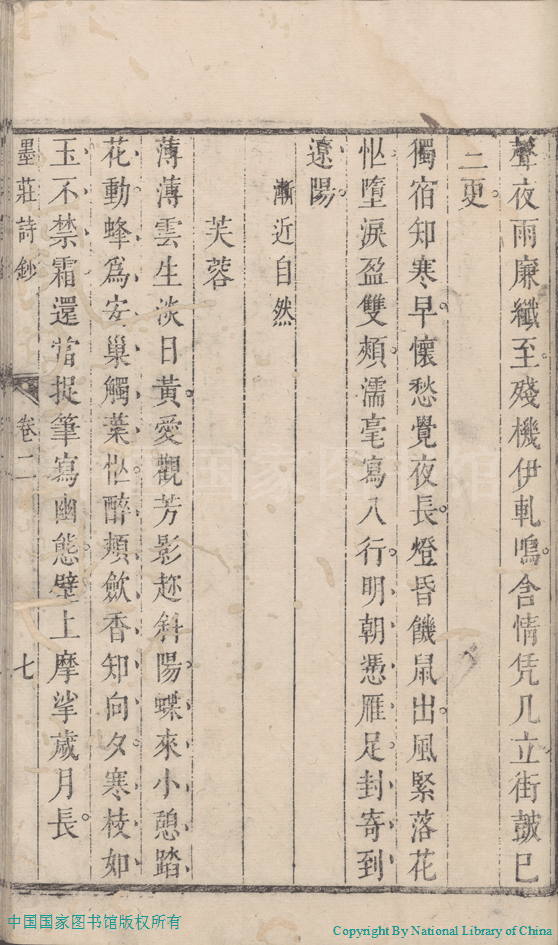 聲夜雨廉纖至殘機伊軋鳴含情凭几立街鼓已
二更
獨宿知寒早懷愁覺夜長燈昏饑鼠出風緊落花
忙墮淚盈雙頰濡毫寫八行明朝憑雁足封寄到
遼陽
漸近自然
芙蓉
薄薄雲生淡日黃愛觀芳影趂斜陽蝶來小憩踏
花動蜂爲安巢觸葉忙醉頰歛香知向夕寒枝如
玉不禁霜還當捉筆寫幽態壁上摩挲歲月長
墨莊詩鈔 卷二 七
中国国家图书馆版权所有
Copyright By National Library of China